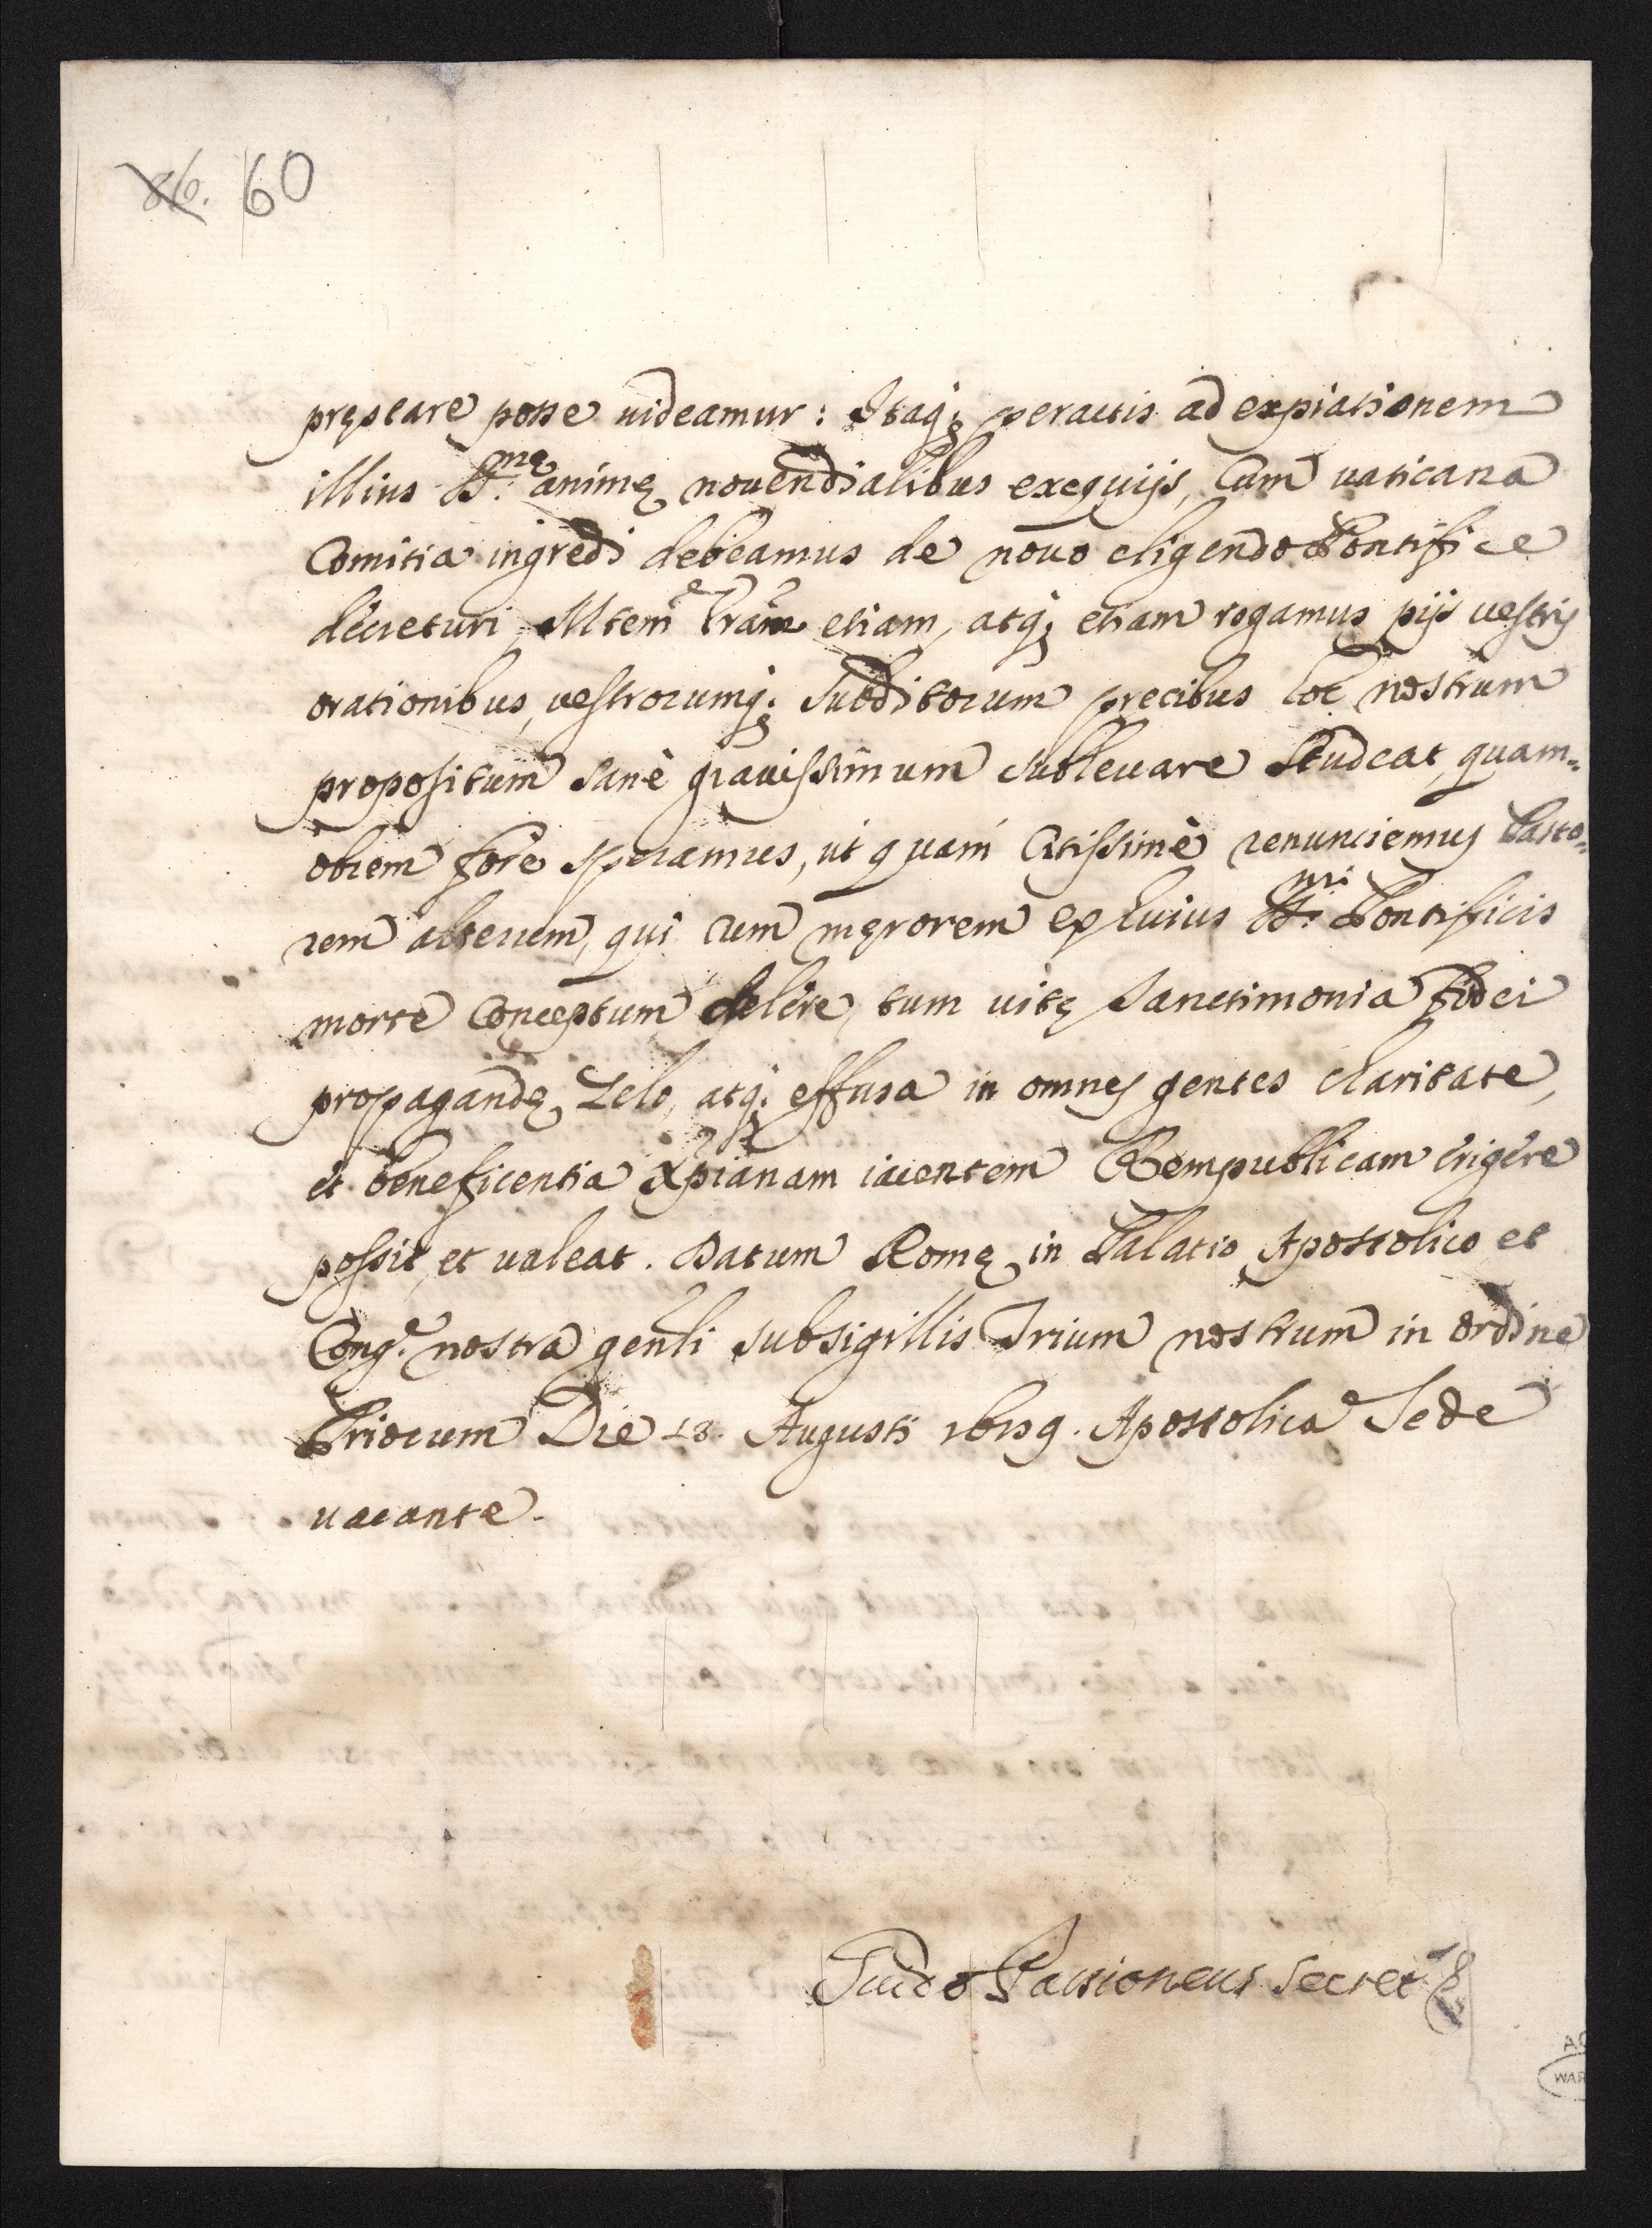 86. 60
pręstare posse uideamur: Itaq; peractis ad expiationem
illius B.mę animę nouendialibus exequijs, Cum uaticana
Comitia ingredi debeamus de nouo eligendo Pontifice
decreturi, Mtem Vram etiam, atq; etiam rogamus pijs uestris
orationibus, uestrorumq; subditorum precibus hoc nostrum
propositum sanè grauissimum subleuare studeat, quam=
obrem fore speramus, ut quam Citissimè renunciemus Pasto=
rem alterum, qui cum męrorem ex huius B.mi Pontificis
morte Conceptum delere, tum uitę sanctimonia fidei
propagandę Zelo, atq; effusa in omnes gentes charitate,
et beneficentia Xpianam iacentem Rempublicam erigere
possit, et ualeat. Datum Romę in Palatio Apostolico et
Cong.e nostra genli sub sigillis Trium nostrum in ordine
Priorum Die 18. Augusti 1689. Apostolica Sede
uacante.
Guido Passioneus Secret
AG
WAR